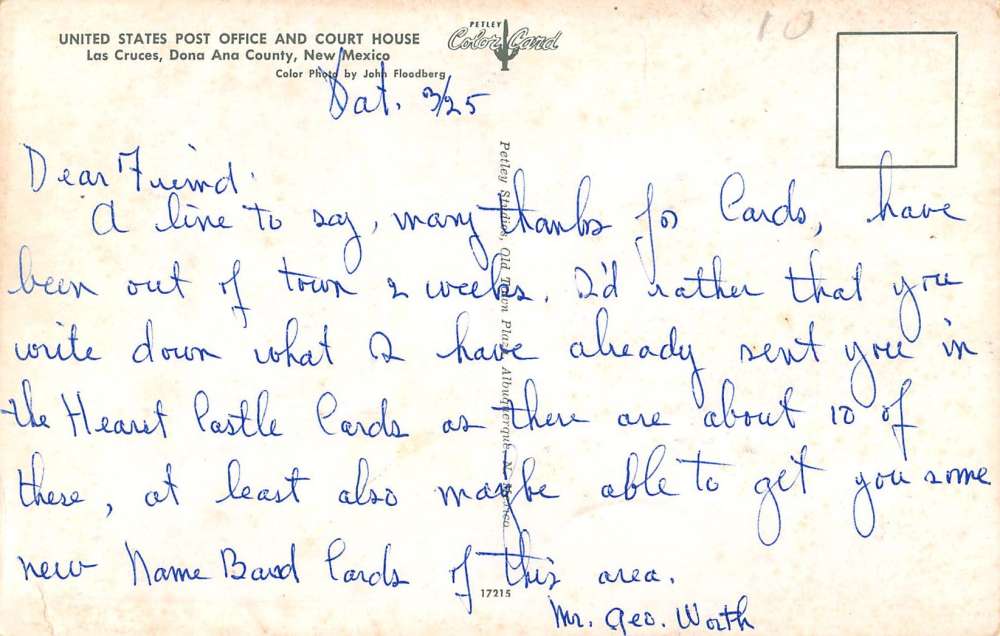 UNITED STATES POST OFFICE AND COURT HOUSE
Las Cruces, Dona Ana County, New Mexico
Color Photo by John Floodberg
PETLEY
Color Card
10
Sat. 3/25
Dear Friend.
A line to say, many thanks for Cards, have
been out of town 2 weeks. I'd rather that you
write down what I have already sent you in
the Hearst Castle Cards as there are about 10 of
these, at least also maybe able to get you some
new Name Band Cards of this area.
Mr. Geo. Worth
Petley Studios, Old Town Plaza, Albuquerque, N. Mexico
17215